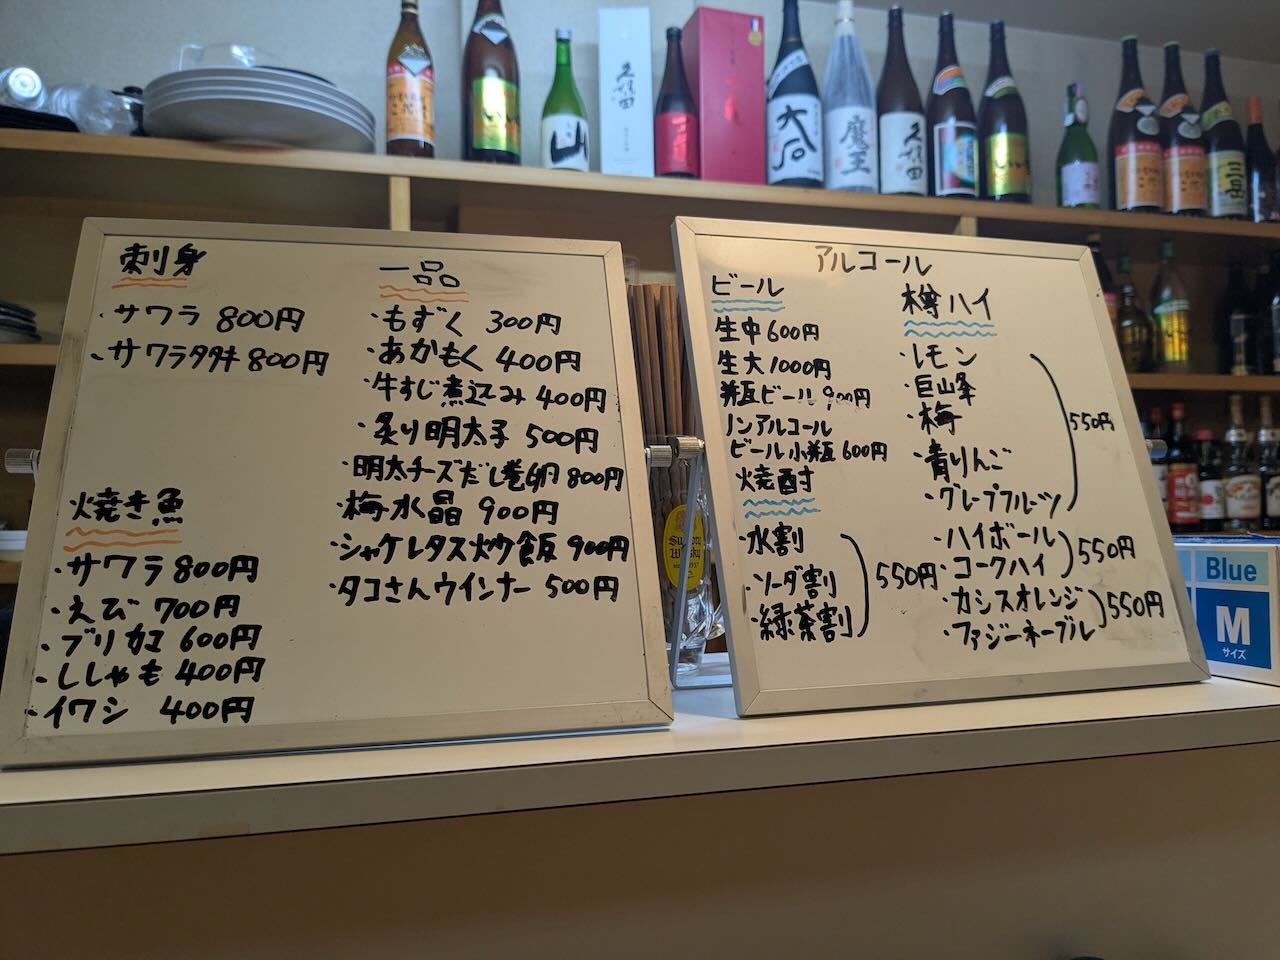 刺身
・サワラ 800円
・サワラタタキ 800円
焼き魚
・サワラ 800円
・えび 700円
・ブリカマ 600円
・ししゃも 400円
・イワシ 400円
一品
・もずく 300円
・あかもく 400円
・牛すじ煮込み 400円
・炙り明太子 500円
・明太チーズだし巻卵 800円
・梅水晶 900円
・シャケレタス炒飯 900円
・タコさんウインナー 500円
アルコール
ビール
生中 600円
生大 1000円
瓶ビール 900円
ノンアルコール
ビール小瓶 600円
焼酎
・水割
・ソーダ割
・緑茶割
550円
樽ハイ
・レモン
・巨峰
・梅
・青りんご
・グレープフルーツ
550円
・ハイボール
・コークハイ
550円
・カシスオレンジ
・ファジーネーブル
550円
久保田
魔王
久保田
山
Blue
M
サイズ